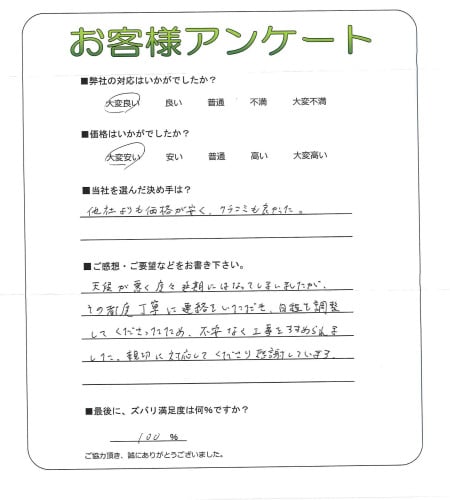 お客様アンケート
■弊社の対応はいかがでしたか?
大変良い 良い 普通 不満 大変不満
■価格はいかがでしたか?
大変安い 安い 普通 高い 大変高い
■当社を選んだ決め手は?
他社よりも価格が安く、クチコミも良かった。
■ご感想・ご要望などをお書き下さい。
天候が悪く度々延期にはなってしまいましたが、
その都度丁寧に連絡をいただき、日程を調整
してくださったため、不安なく工事をすすめられま
した。親切に対応してくださり感謝しています。
■最後に、ズバリ満足度は何%ですか?
100 %
ご協力頂き、誠にありがとうございました。